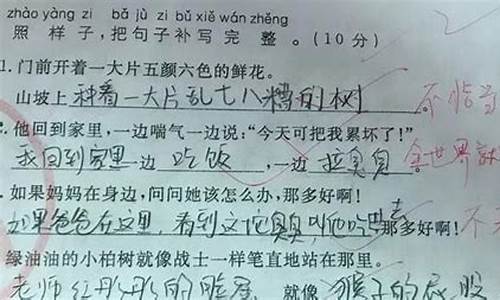 zhào yàng zi bǎ jù zi bǔ xiě wán zhěng
照样子,把句子补写完整。(10分)
1.门前开着一大片五颜六色的鲜花。
山坡上种着一大片乱七八糟的树 不恰当
.他回到家里,一边喘气一边说:“今天可把我累坏了!”
我回到家里一边吃饭,一边拉臭臭。全世界就
.如果妈妈在身边,问问她该怎么办,那多好啊!
如果爸爸在这里,看到这坨臭臭叫他吃去那多好啊!不
绿油油的小柏树就像战士一样笔直地站在那里。
老师红彤彤的脸 就像猴子的屁股